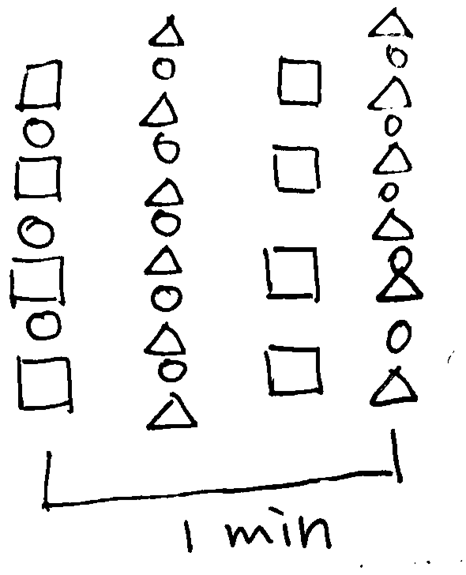 1 min